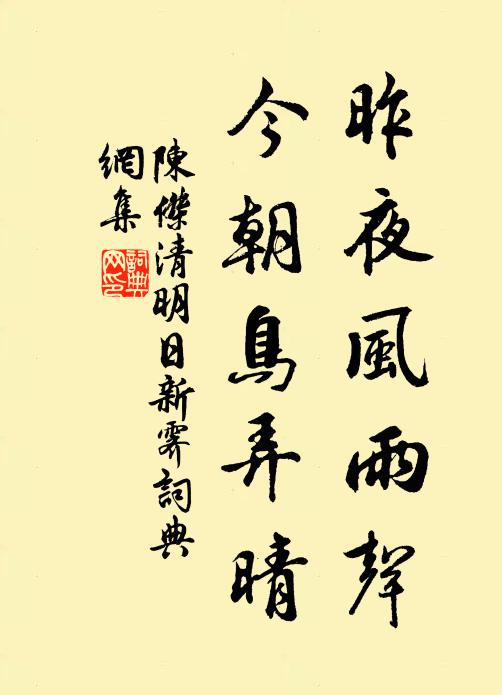 昨夜風雨聲
今朝鳥弄晴
陳傑清明日新霽詞典
網集
詞典
网印